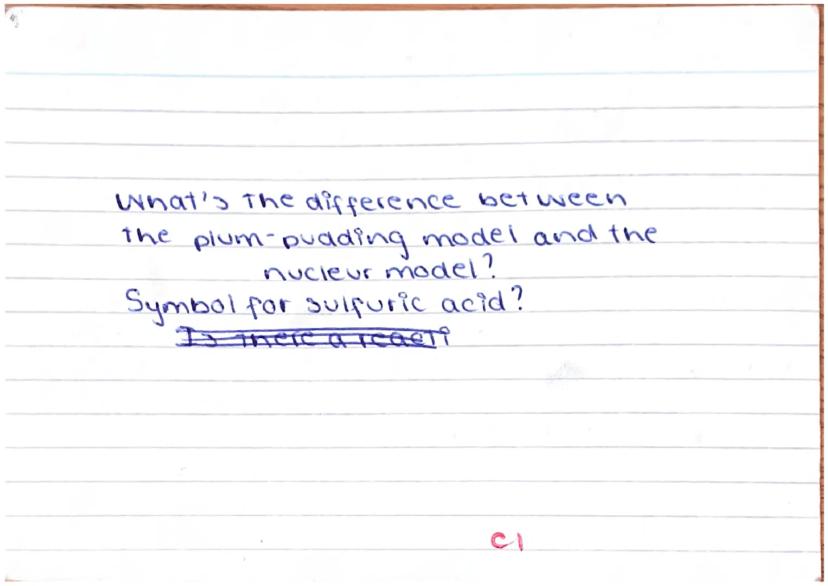 What's the difference between
the plum-pudding model and the
nucleur model?
Symbol for sulfuric acid?
Is there a reacti
C1